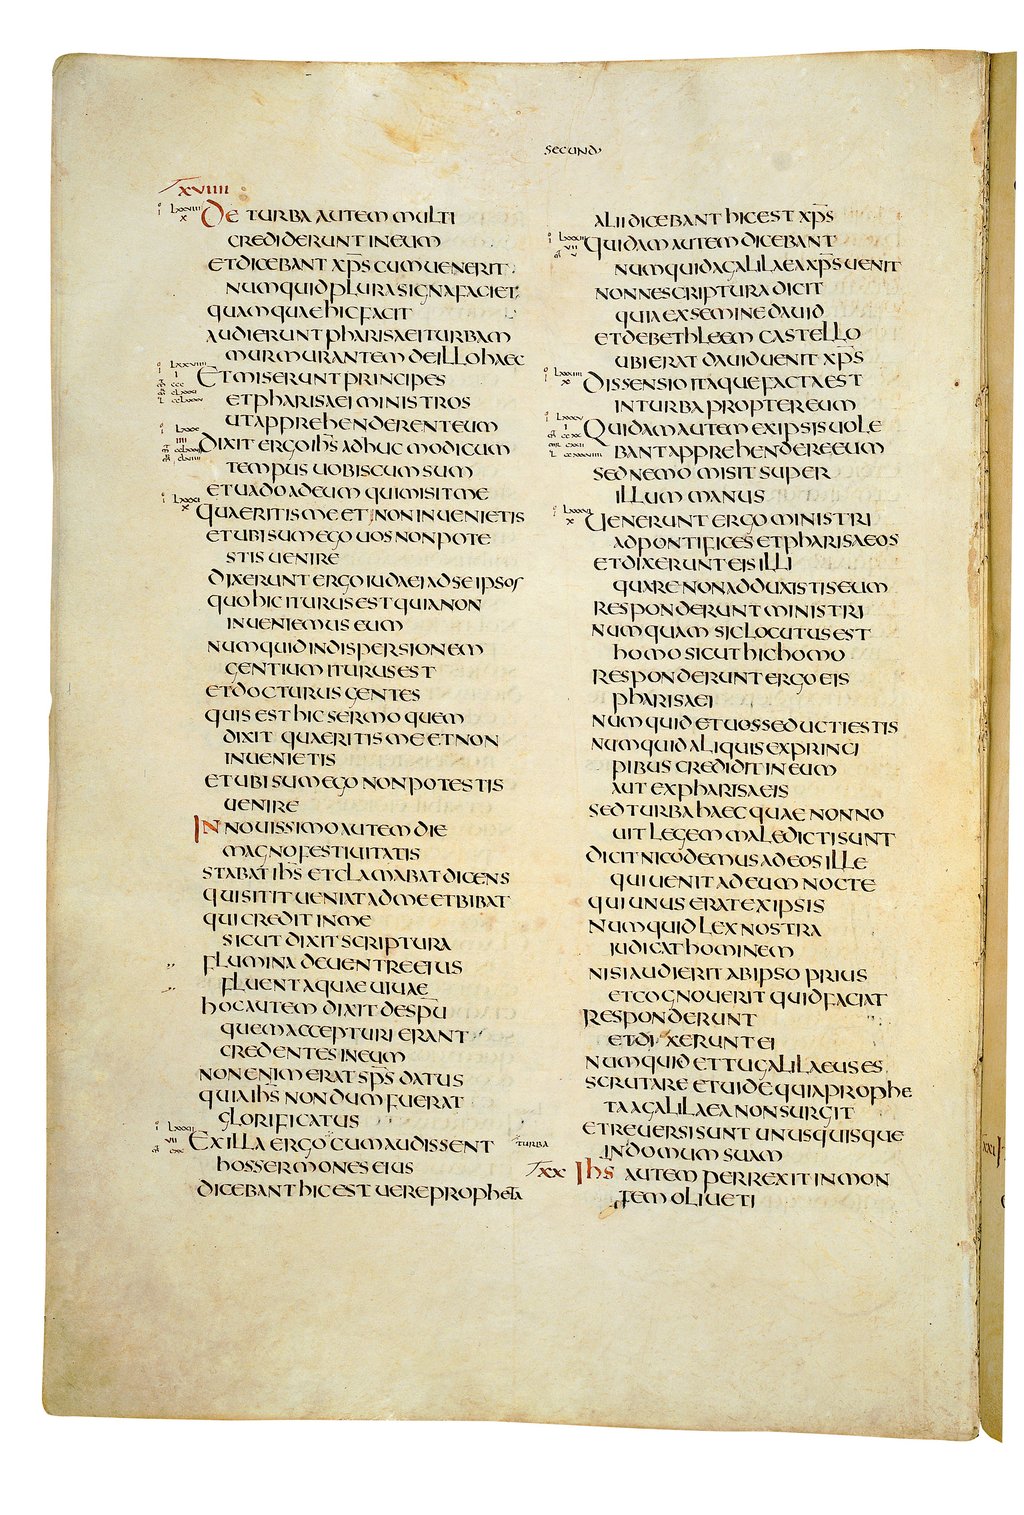 secund
xviiii
De turba autem multi
crediderunt in eum
et dicebant xps cum uenerit
numquid plura signa faciet
quam quae hic facit
audierunt pharisaei turbam
murmurantem de illo haec
Et miserunt principes
et pharisaei ministros
ut apprehenderent eum
Dixit ergo ihs adhuc modicum
tempus uobiscum sum
et uado ad eum qui misit me
Quaeritis me et non inuenietis
et ubi sum ego uos non pote
stis uenire
dixerunt ergo iudaei ad se ipsos
quo hic iturus est quia non
inueniemus eum
numquid in dispersionem
gentium iturus est
et docturus gentes
quis est hic sermo quem
dixit quaeritis me et non
inuenietis
et ubi sum ego non potestis
uenire
In nouissimo autem die
magno festiuitatis
stabat ihs et clamabat dicens
qui sitit ueniat ad me et bibat
qui credit in me
sicut dixit scriptura
flumina de uentre eius
fluent aquae uiuae
hoc autem dixit de spu
quem accepturi erant
credentes in eum
non enim erat sps datus
quia ihs nondum fuerat
glorificatus
Ex illa ergo cum audissent turba
hos sermones eius
dicebant hic est uere propheta
alii dicebant hic est xps
Quidam autem dicebant
numquid a galilaea xps uenit
nonne scriptura dicit
quia ex semine dauid
et de bethleem castello
ubi erat dauid uenit xps
Dissensio itaque facta est
in turba propter eum
Quidam autem ex ipsis uole
bant apprehendere eum
sed nemo misit super
illum manus
Uenerunt ergo ministri
ad pontifices et pharisaeos
et dixerunt eis illi
quare non adduxistis eum
responderunt ministri
numquam sic locutus est
homo sicut hic homo
responderunt ergo eis
pharisaei
numquid et uos seducti estis
numquid aliquis ex princi
pibus credidit in eum
aut ex pharisaeis
sed turba haec quae non no
uit legem maledicti sunt
dicit nicodemus ad eos ille
qui uenit ad eum nocte
qui unus erat ex ipsis
numquid lex nostra
iudicat hominem
nisi audierit ab ipso prius
et cognouerit quid faciat
responderunt
et dixerunt ei
numquid et tu galilaeus es
scrutare et uide quia prophe
ta a galilaea non surgit
et reuersi sunt unusquisque
in domum suam
xx Ihs autem perrexit in mon
tem oliueti